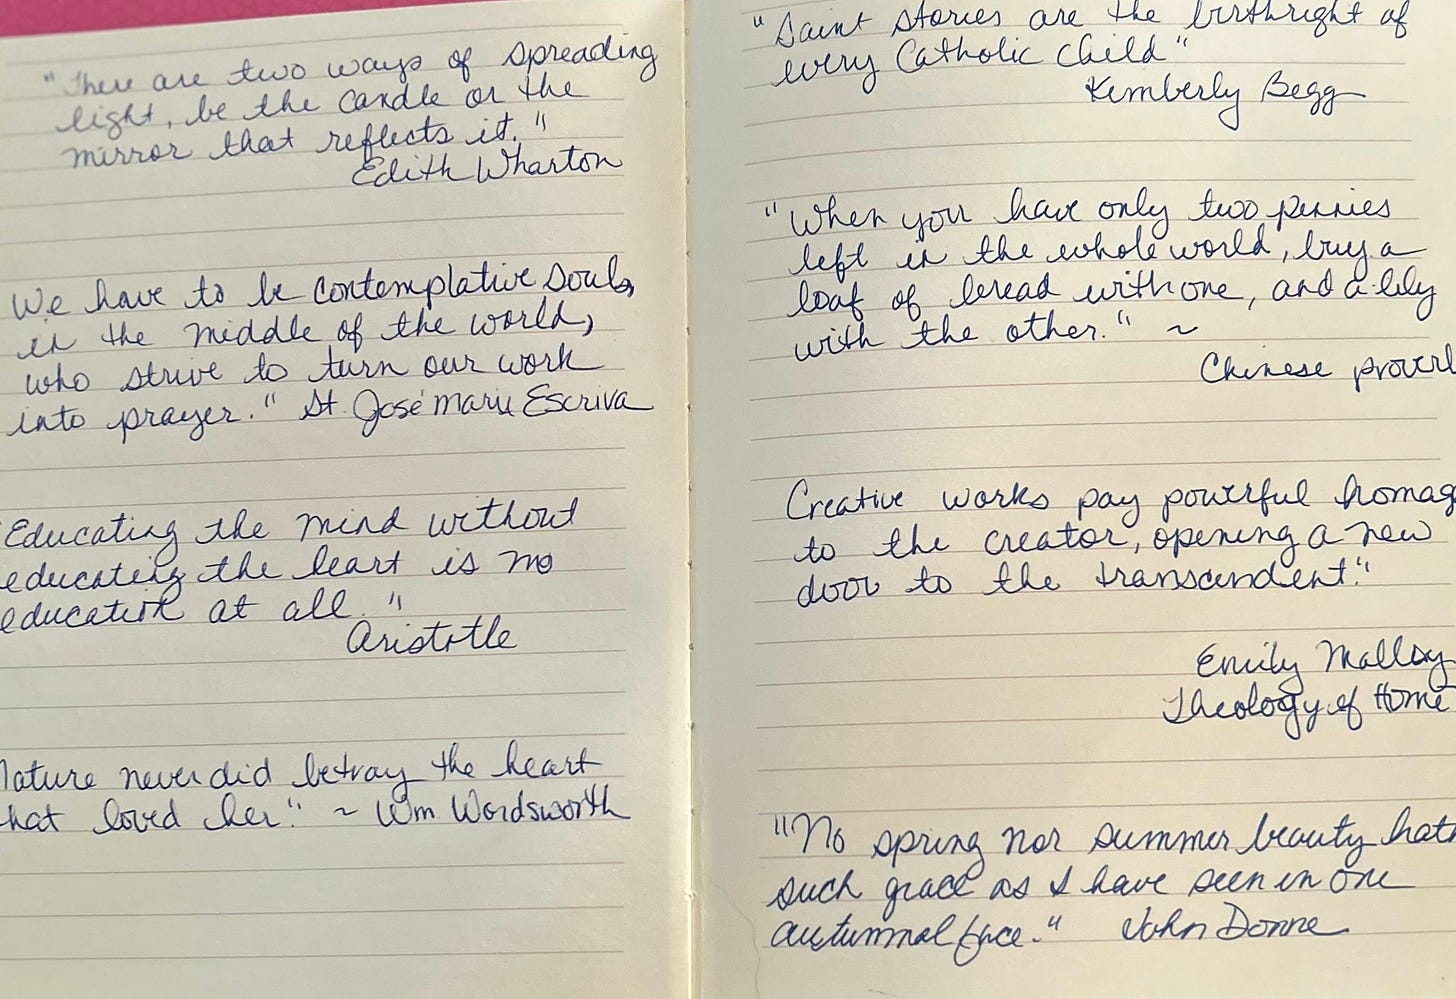 "There are two ways of spreading
light, be the candle or the
mirror that reflects it."
Edith Wharton
We have to be contemplative souls,
in the middle of the world,
who strive to turn our work
into prayer." St. José maria Escriva
"Educating the mind without
educating the heart is no
education at all."
Aristotle
Nature never did betray the heart
that loved her." ~ Wm Wordsworth
"Saint stories are the birthright of
every Catholic child"
Kimberly Begg
"When you have only two pennies
left in the whole world, buy a
loaf of bread with one, and a lily
with the other." ~
Chinese prover
Creative works pay powerful homag
to the creator, opening a new
door to the transcendent."
Emily Malloy
Theology of Home
"No spring nor summer beauty hath
such grace as I have seen in one
autumnal face." John Donne